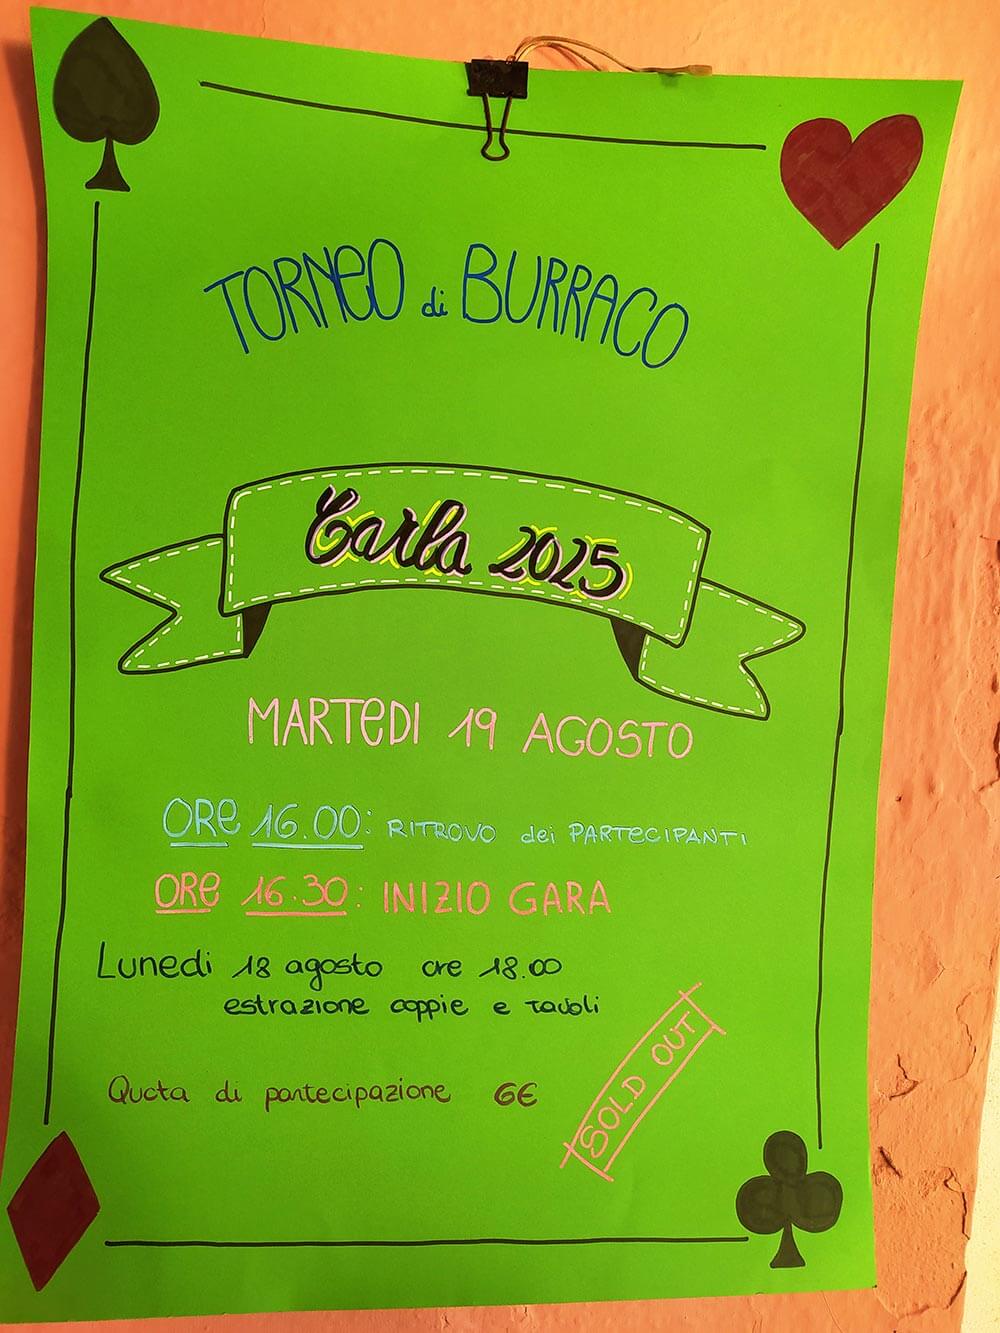 TORNeO di BURRACO
Carla 2025
MARTeDI 19 AGOSTO
ORe 16.00: RITROVO dei PARTeCIPANTI
ORe 16.30: INIZIO GARA
Lunedi 18 agosto ore 18.00
estrazione coppie e tavoli
Quota di partecipazione 6€
SOLD OUT